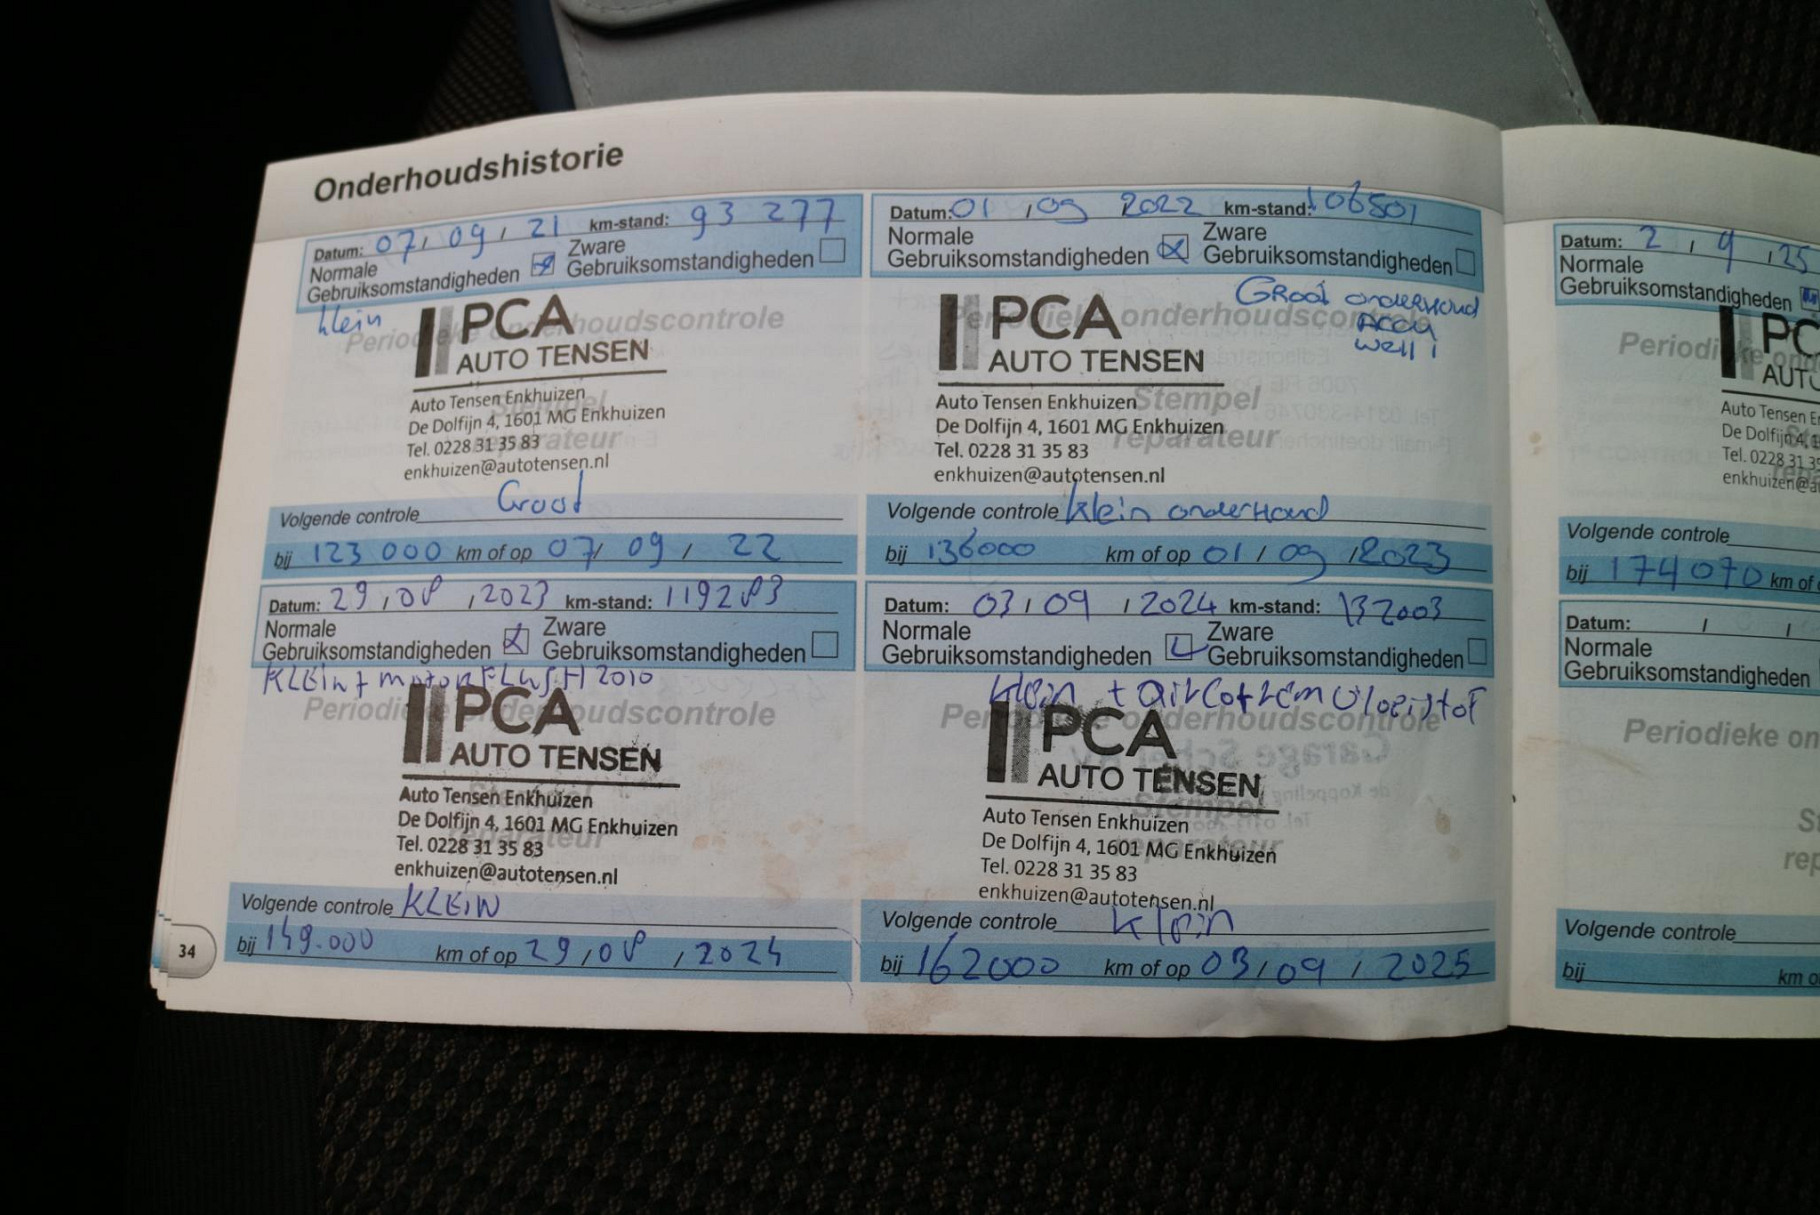 Onderhoudshistorie
Datum: 07, 09, 21 km-stand: 93 277
Normale Gebruiksomstandigheden Zware Gebruiksomstandigheden
klein
Periodieke onderhoudscontrole
PCA
AUTO TENSEN
Stempel reparateur
Auto Tensen Enkhuizen
De Dolfijn 4, 1601 MG Enkhuizen
Tel. 0228 31 35 83
enkhuizen@autotensen.nl
Volgende controle Groot
bij 123 000 km of op 07, 09, 22
Datum: 01, 09 2022 km-stand: 106501
Normale Gebruiksomstandigheden Zware Gebruiksomstandigheden
Groot onderhoud
Periodieke onderhoudscontrole
PCA
AUTO TENSEN
Stempel reparateur
Auto Tensen Enkhuizen
De Dolfijn 4, 1601 MG Enkhuizen
Tel. 0228 31 35 83
enkhuizen@autotensen.nl
Volgende controle klein onderhoud
bij 136000 km of op 01, 09, 2023
Datum: 29, 08, 2023 km-stand: 119283
Normale Gebruiksomstandigheden Zware Gebruiksomstandigheden
KLEIN + motor FLUSH 2010
Periodieke onderhoudscontrole
PCA
AUTO TENSEN
Stempel reparateur
Auto Tensen Enkhuizen
De Dolfijn 4, 1601 MG Enkhuizen
Tel. 0228 31 35 83
enkhuizen@autotensen.nl
Volgende controle KLEIN
bij 149.000 km of op 29, 08, 2024
Datum: 03, 09, 2024 km-stand: 132003
Normale Gebruiksomstandigheden Zware Gebruiksomstandigheden
klein + airco + remvloeistof
Periodieke onderhoudscontrole
PCA
AUTO TENSEN
Stempel reparateur
Auto Tensen Enkhuizen
De Dolfijn 4, 1601 MG Enkhuizen
Tel. 0228 31 35 83
enkhuizen@autotensen.nl
Volgende controle klein
bij 162000 km of op 03, 09, 2025
34
Datum: 2, 9, 25
Normale
Gebruiksomstandigheden
Periodieke on
PC
AUTO
Auto Tensen E
De Dolfijn 4, 1
Tel. 0228 31 3
enkhuizen@a
Volgende controle
bij 174070 km of
Datum: , ,
Normale
Gebruiksomstandigheden
Periodieke on
St
rep
Volgende controle
bij km o